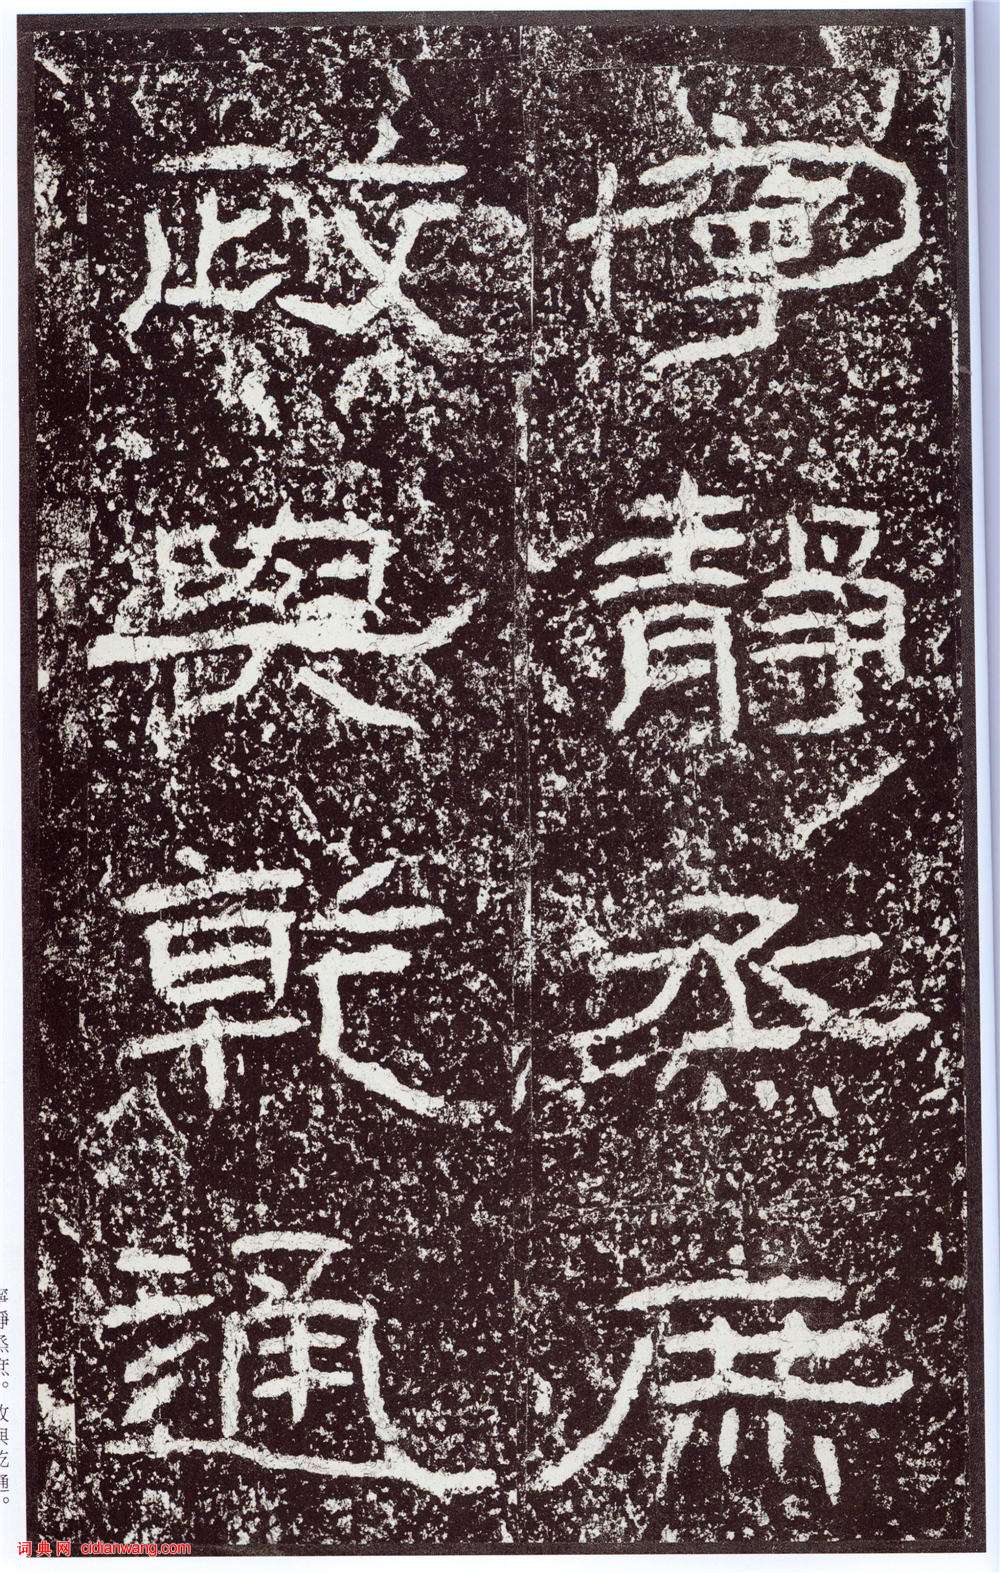 寧靜烝庶
政與乾通
寧靜烝庶。政與乾通。
词典网 cidianwang.com